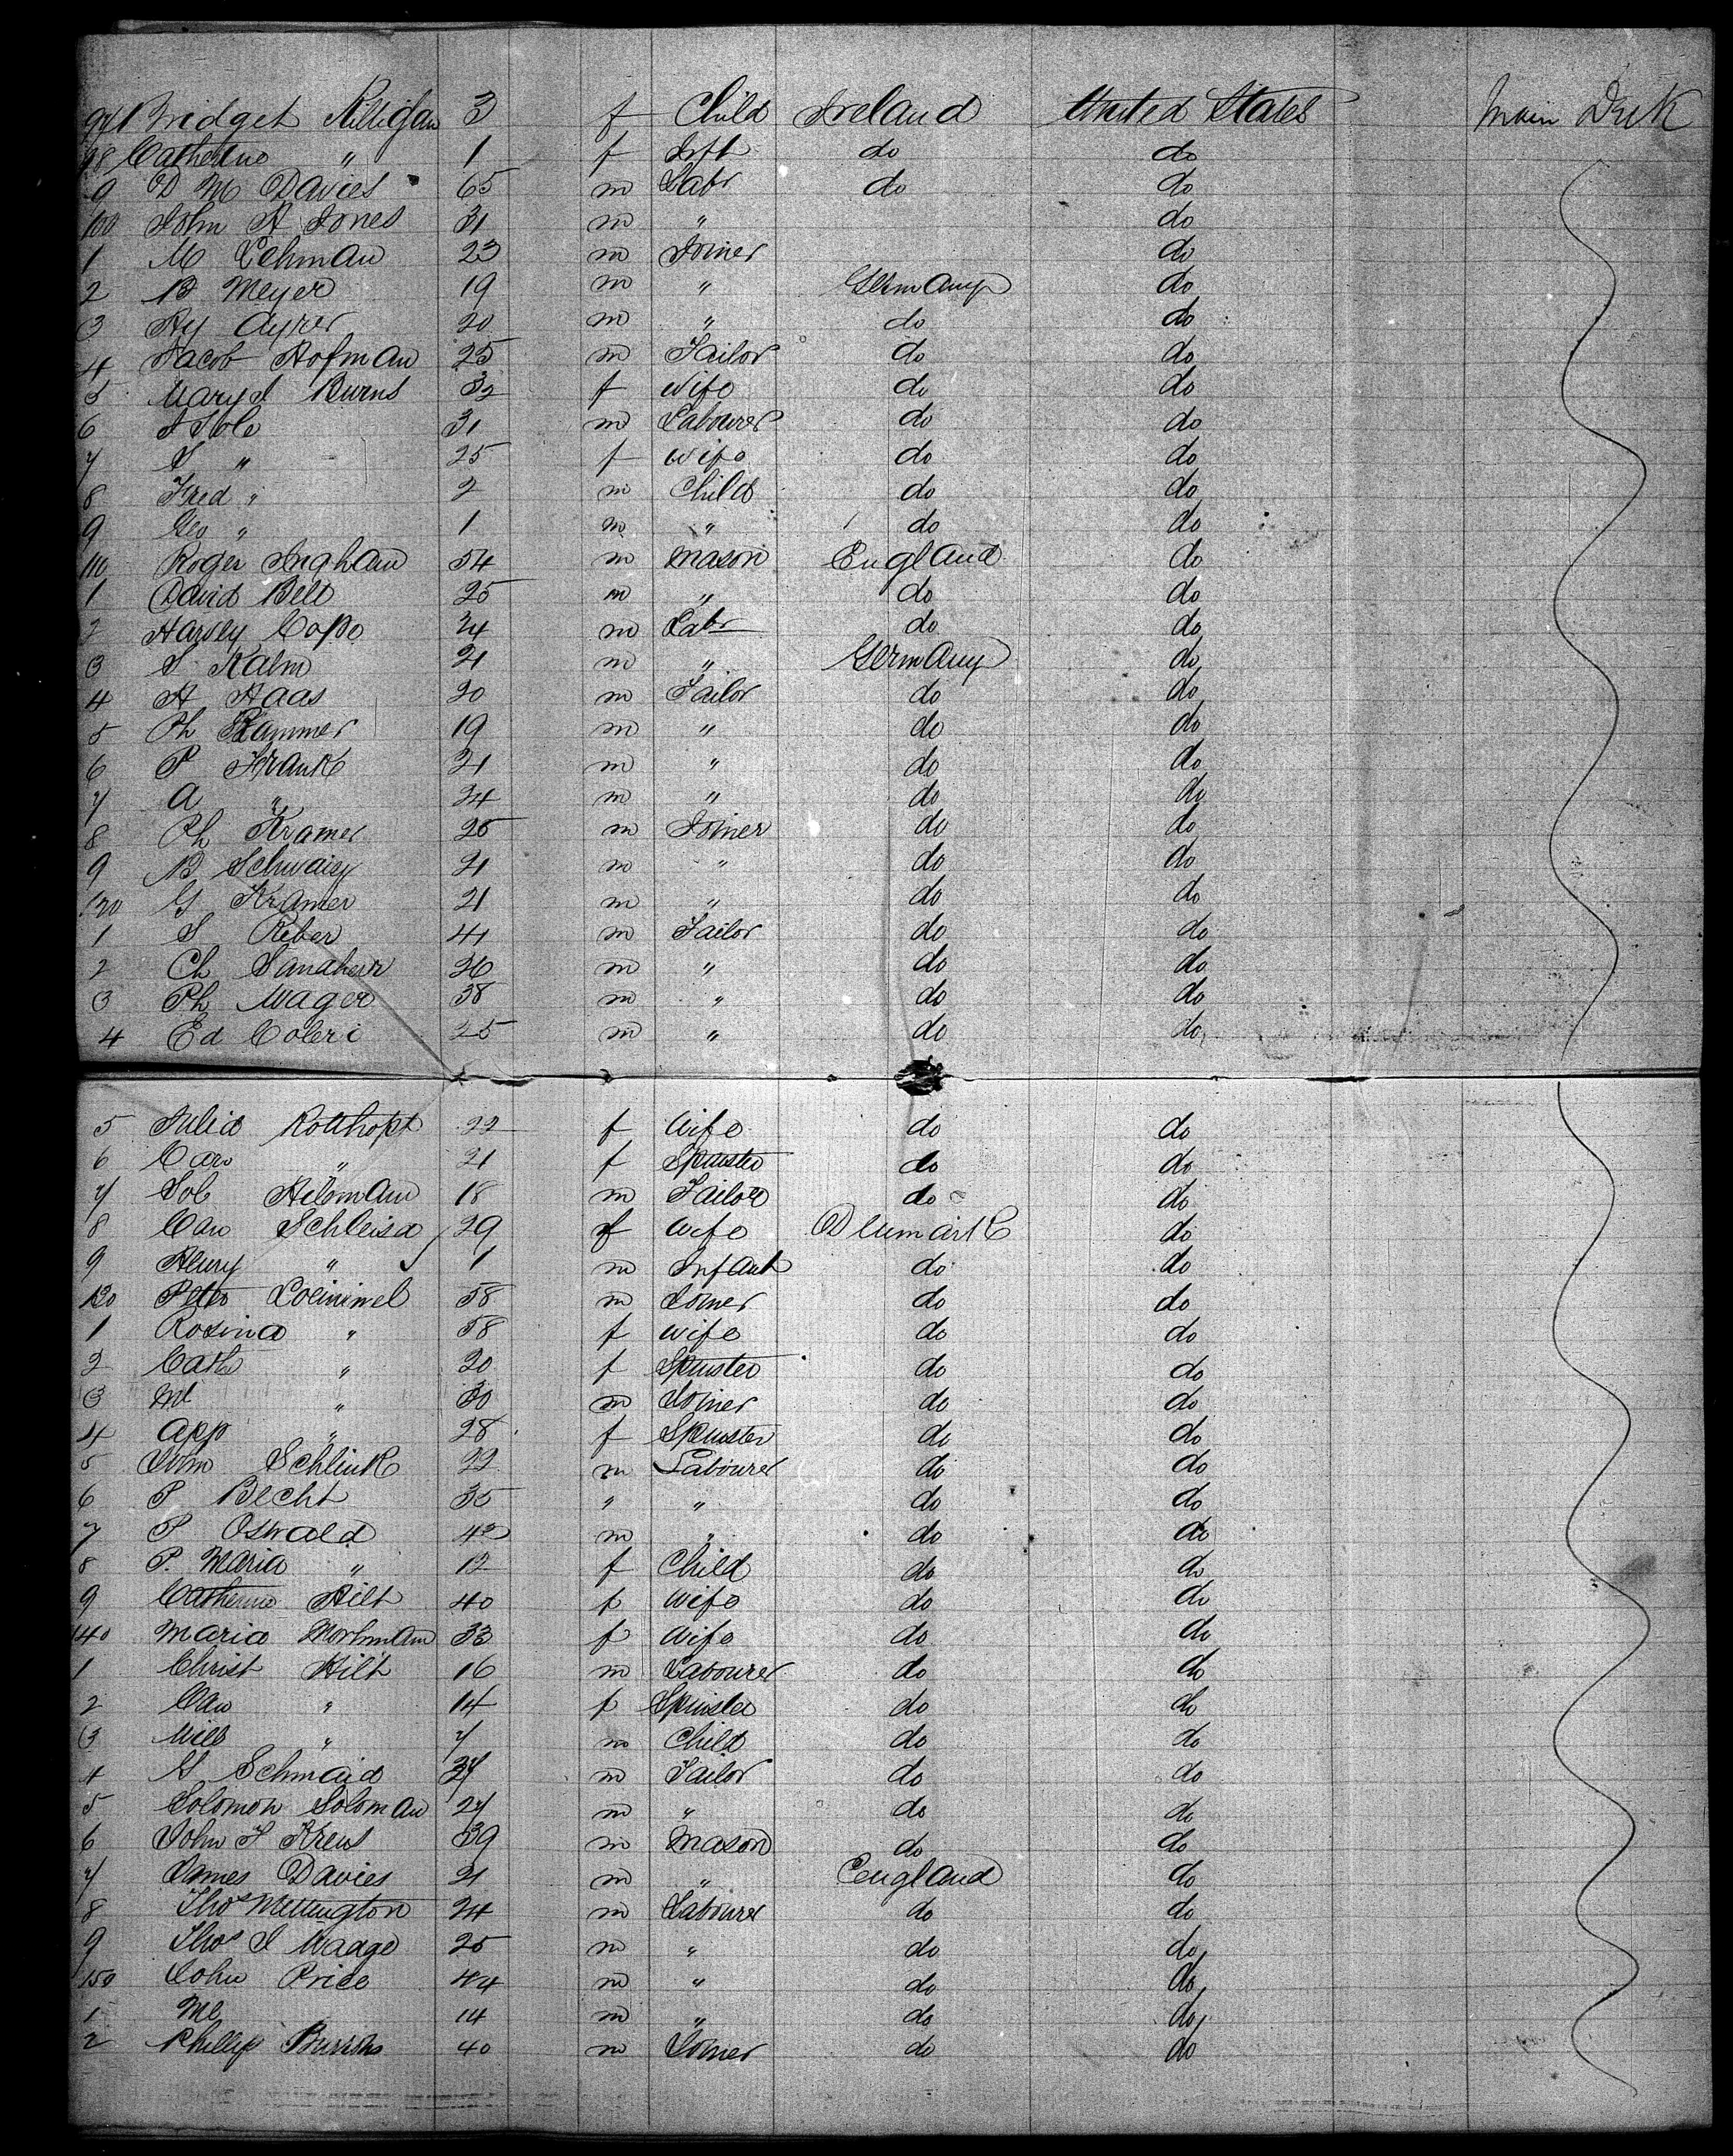 97 Bridget Killigan 3 f Child Ireland United States Main Deck
98 Catherine " 1 f Inft do do
9 D M Davies 65 m Labr do do
100 John H Jones 31 m " do
1 M Lehman 23 m Joiner do
2 B Meyer 19 m " Germany do
3 Hy Ayrer 20 m " do do
4 Jacob Hofman 25 m Tailor do do
5 Mary J Burns 32 f Wife do do
6 31 m Labourer do do
7 S " 25 f Wife do do
8 Fred " 2 m Child do do
9 Geo " 1 m " do do
110 Roger Ingham 54 m Mason England do
1 David Bell 25 m " do do
2 Harvey Cope 34 m Labr do do
3 S Kalm 21 m " Germany do
4 A Haas 20 m Tailor do do
5 Ph Kammer 19 m " do do
6 P Frank 21 m " do do
7 A " 34 m " do do
8 Ph Kramer 25 m Joiner do do
9 B 21 m " do do
120 G Kramer 21 m " do do
1 S Reber 41 m Tailor do do
2 Ch 26 m " do do
3 Ph Mager 38 m " do do
4 Ed Coleri 25 m " do do
5 Julia Rotthopt 22 f Wife do do
6 Caro " 21 f Spinster do do
7 Sol Heloman 18 m Tailor do do
8 Caro Schleisa 29 f Wife Denmark do
9 Henry " 1 m Infant do do
130 Peter 58 m Joiner do do
1 Rosina " 58 f Wife do do
2 Cath " 20 f Spinster do do
3 Ml " 30 m Joiner do do
4 App " 28 f Spinster do do
5 Schlink 22 m Labourer do do
6 P Becht 35 " " do do
7 P Oswald 42 m " do do
8 P. Maria " 12 f Child do do
9 Catherine Hilt 40 f Wife do do
140 Maria Morhman 33 f Wife do do
1 Christ Hilt 16 m Labourer do do
2 Caro " 14 f Spinster do do
3 Will " 7 m Child do do
4 G Schmaid 37 m Tailor do do
5 Solomon Soloman 27 m " do do
6 John F Kreus 39 m Mason do do
7 James Davies 21 m " England do
8 Thos Mellington 24 m Labourer do do
9 Thos J Waage 25 m " do do
150 John Price 44 m " do do
1 Ml 14 m " do do
2 Phillip 40 m Joiner do do